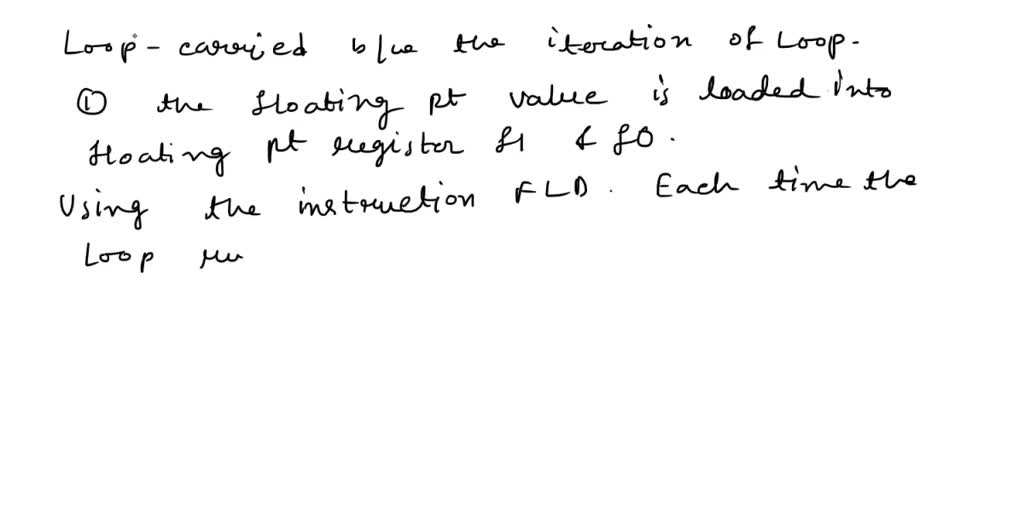 Loop-carried b/w the iteration of Loop.
① the floating pt value is loaded into
floating pt register f1 & f0.
Using the instruction FLD. Each time the
Loop ru